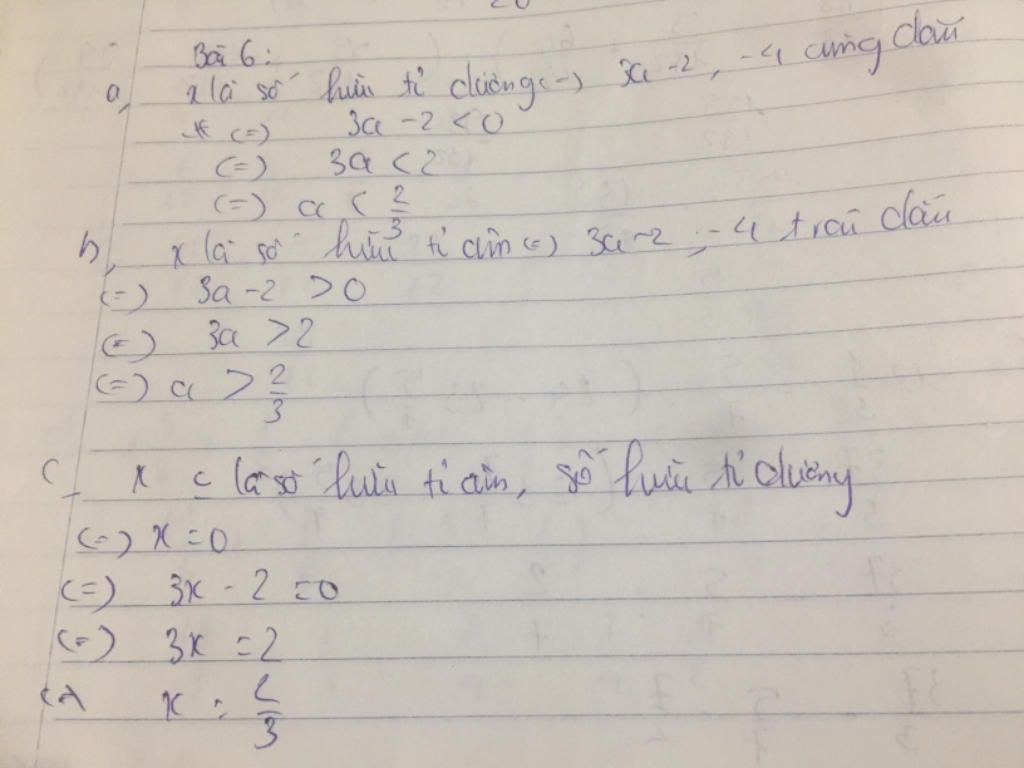 20
Bài 6:
a, x là số hữu tỉ dương (=) 3a - 2, -4 cùng dấu
(=) 3a - 2 < 0
(=) 3a < 2
(=) a < 2/3
b, x là số hữu tỉ âm (=) 3a - 2, -4 trái dấu
(=) 3a - 2 > 0
(=) 3a > 2
(=) a > 2/3
c, x là số hữu tỉ âm, số hữu tỉ dương
(=) x = 0
(=) 3x - 2 = 0
(=) 3x = 2
(=) x = 2/3